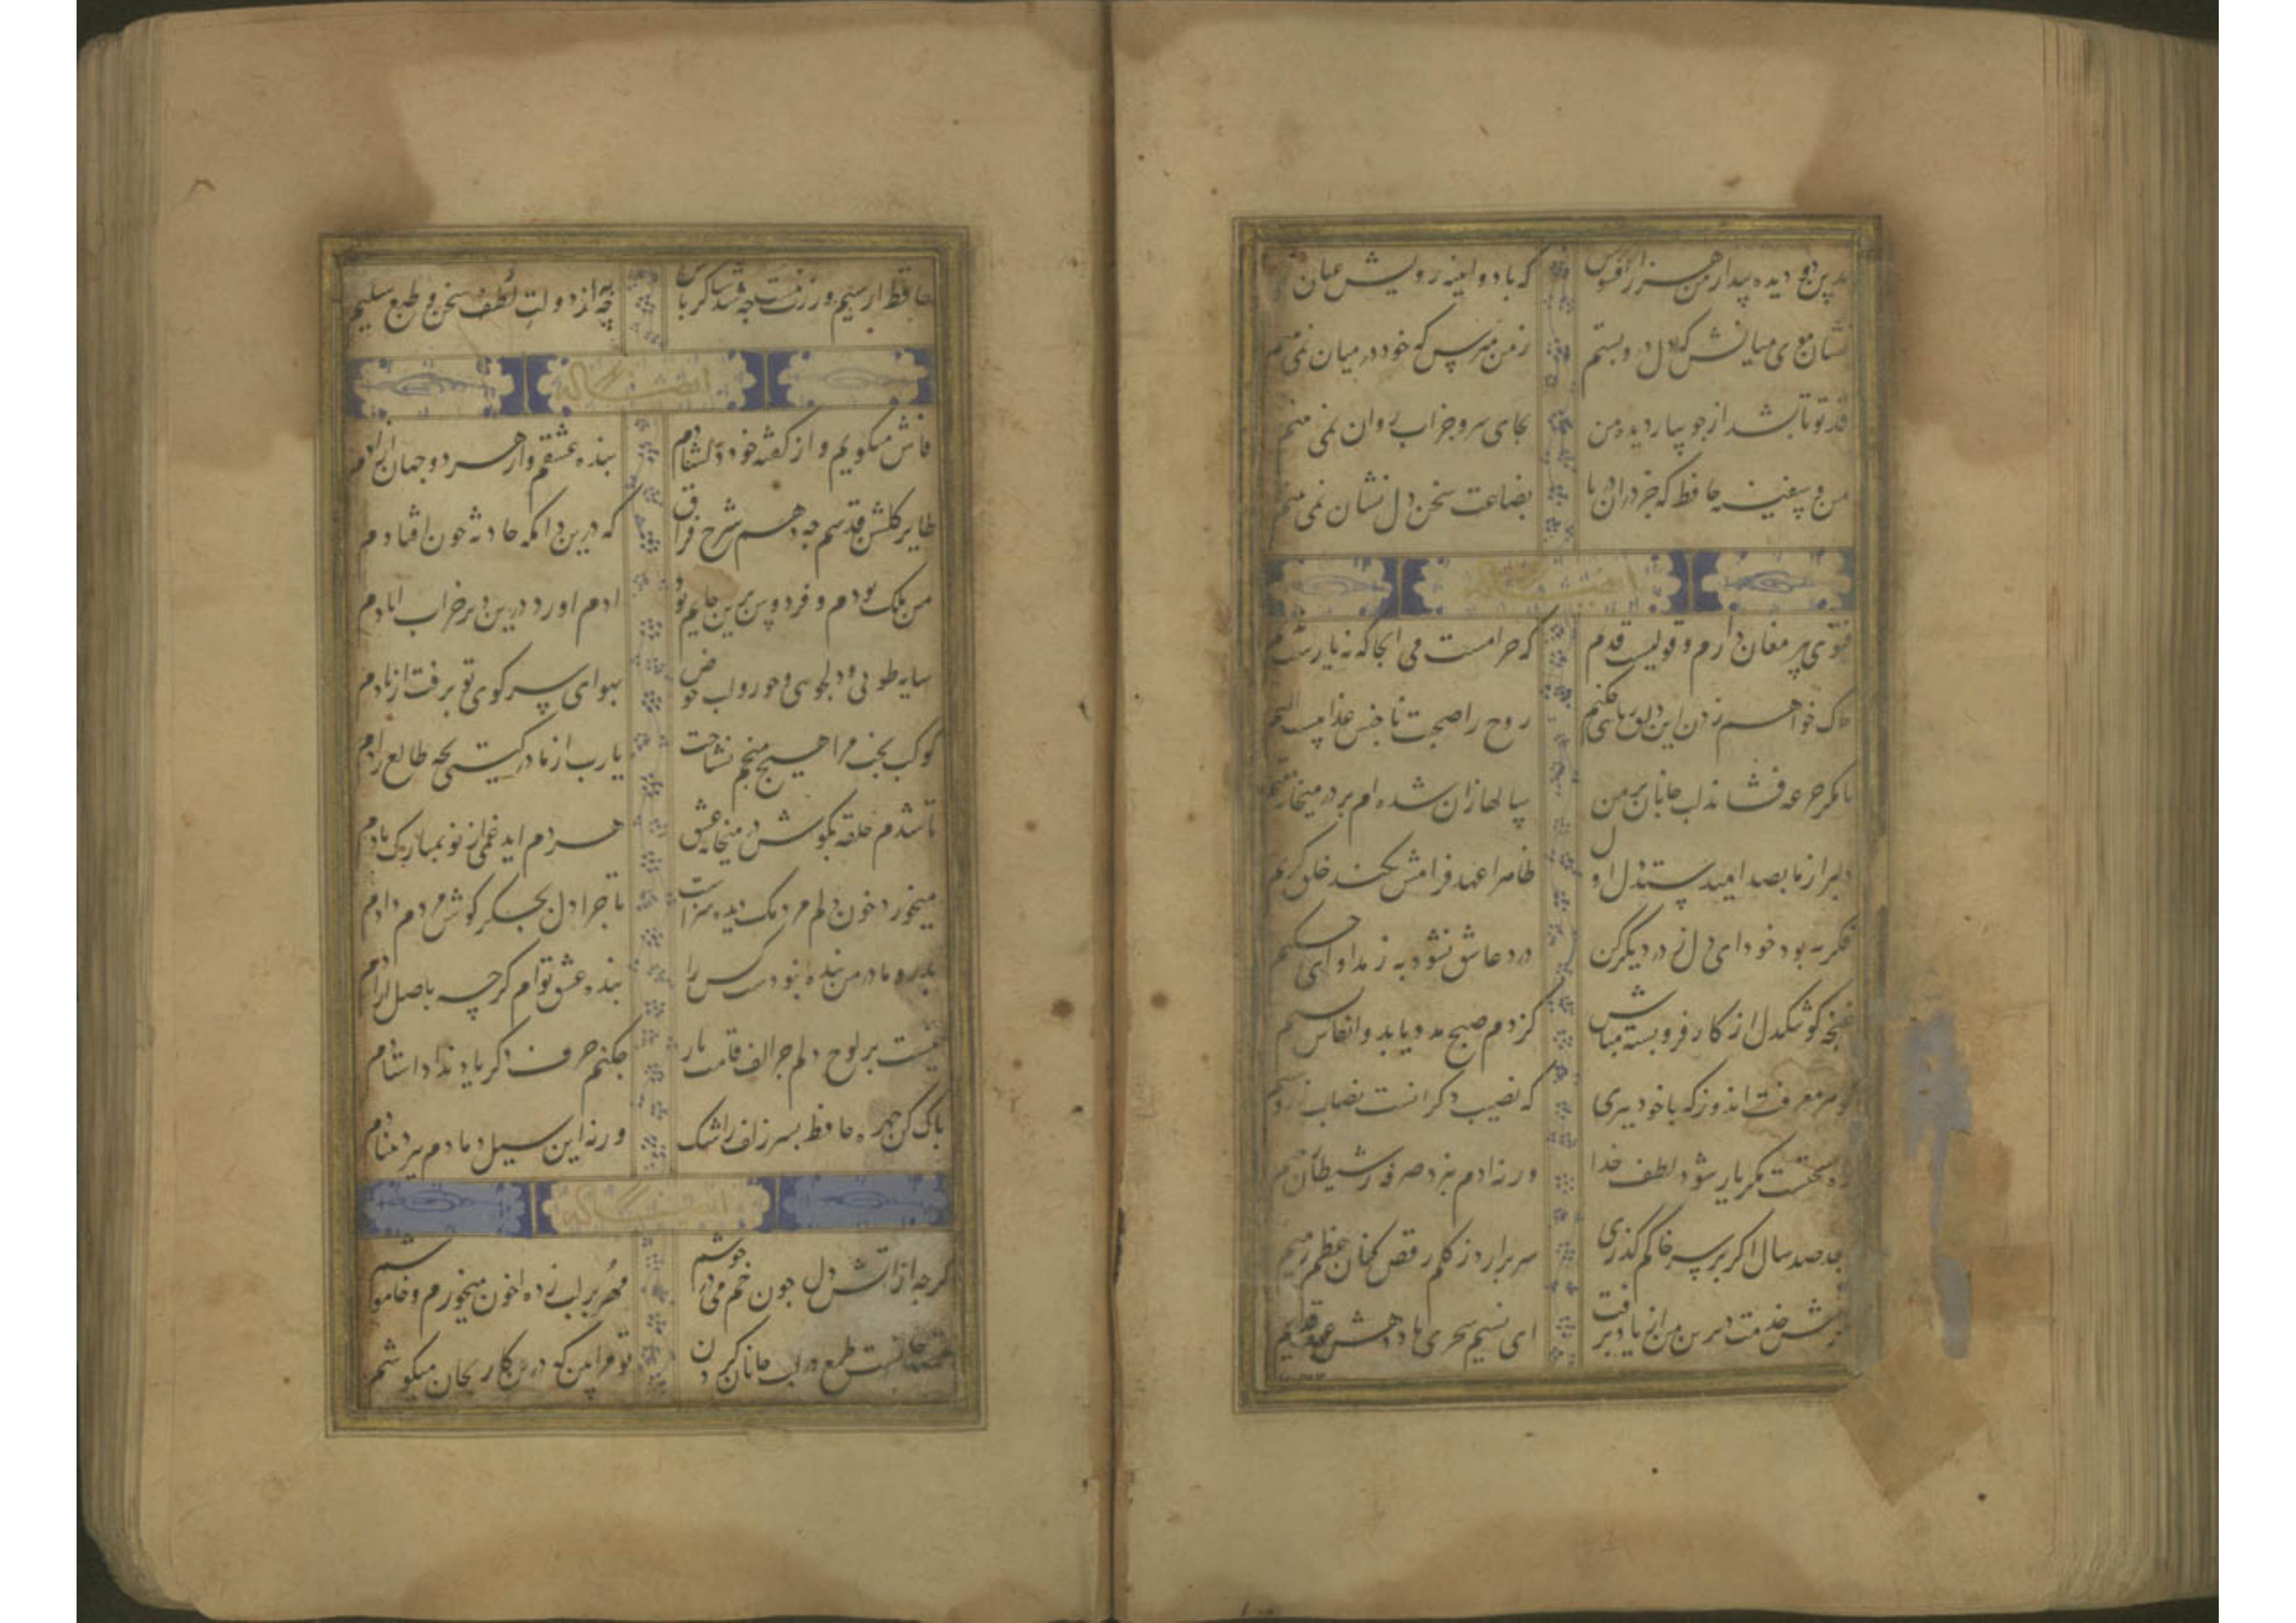 بدین دو دیده بیدار من هزار افسوس که با دو اینه رویش عیان نمی بینم
نشان موی میانش که دل درو بستم ز من مپرس که خود در میان نمی بینم
قد تو تا بشد از جویبار دیده من بجای سرو جز اب روان نمی بینم
من و سفینه حافظ که جز دران دریا بضاعت سخن دل نشان نمی بینم
فتوی پیر مغان دارم و قولیست قدیم که حرامست می انجا که نه یارست ندیم
چاک خواهم زدن این دلق ریایی چکنم روح را صحبت ناجنس عذابیست الیم
تا مگر جرعه فشاند لب جانان بر من سالها زان شده ام بر در میخانه مقیم
دلبر از ما بصد امید ستد اول دل ظاهرا عهد فرامش نکند خلق کریم
فکر به بود خود ای دل ز در دیگر کن درد عاشق نشود به ز مداوای حکیم
غنچه کو تنکدل از کار فروبسته مباش کز دم صبح مدد یابد و انفاس نسیم
گوهر معرفت اندوز که با خود ببری که نصیب دکرانست نصاب زر و سیم
دام سختست مکر یار شود لطف خدا ورنه ادم نبرد صرفه ز شیطان رجیم
بعد صد سال اکر بر سر خاکم گذری سر برارد ز کلم رقص کنان عظم رمیم
مکرش خدمت دیرین من از یاد برفت ای نسیم سحری یاد دهش عهد قدیم
حافظ ار سیم و زرت نیست چه شد شاکر باش چه به از دولت لطف سخن و طبع سلیم
فاش میکویم و از کفته خود دلشادم بنده عشقم و از هر دو جهان ازادم
طایر کلشن قدسم چه دهم شرح فراق که درین دامکه حادثه چون افتادم
من ملک بودم و فردوس برین جایم بود ادم اورد درین دیر خراب ابادم
سایه طوبی و دلجویی حور و لب حوض بهوای سر کوی تو برفت از یادم
کوکب بخت مرا هیچ منجم نشناخت یارب از مادر کیتی بچه طالع زادم
تا شدم حلقه بکوش در میخانه عشق هر دم اید غمی از نو بمبارک بادم
میخورد خون دلم مردمک دیده سزاست تا چرا دل بجکر کوشه مردم دادم
پدر و مادر من بنده نبودست کس را بنده عشق توام کرچه باصل ازادم
نیست بر لوح دلم جز الف قامت یار چکنم حرف دکر یاد نداد استادم
پاک کن چهره حافظ بسر زلف ز اشک ورنه این سیل دمادم ببرد بنیادم
کرچه از اتش دل چون خم می در جوشم مهر بر لب زده خون میخورم و خاموشم
قصد جانست طمع در لب جانان کردن تو مرا بین که درین کار بجان میکوشم